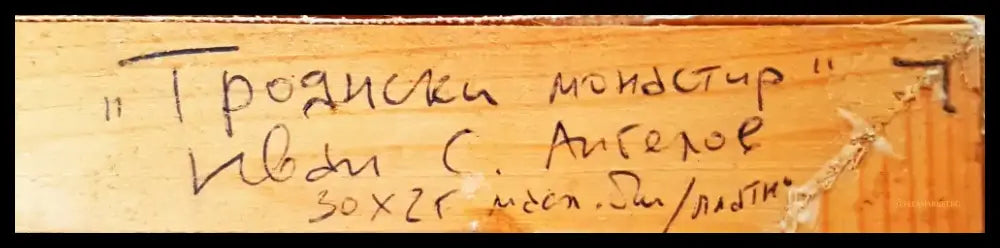 "Троянски монастир"
Иван С. Ангелов
30x25 масл. бои/платно